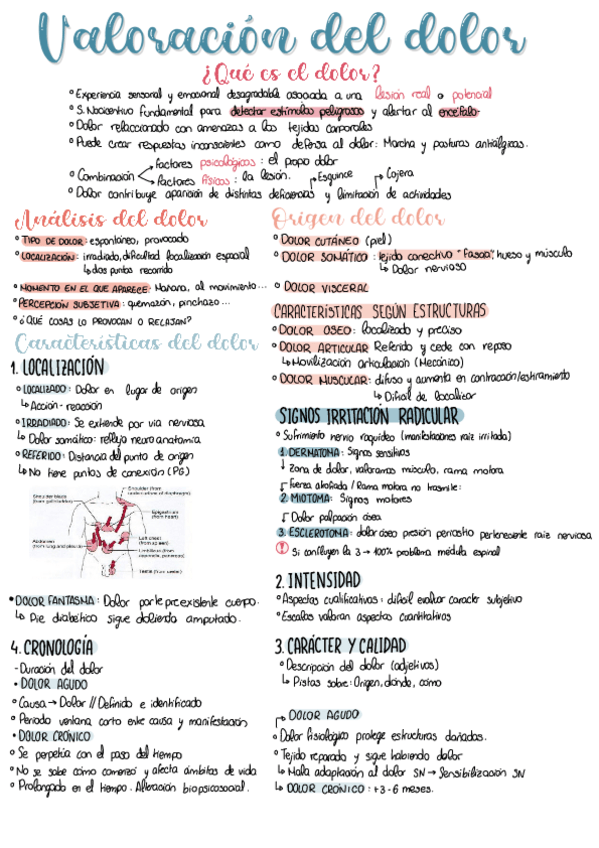 Valoración del dolor
¿Qué es el dolor?
° Experiencia sensorial y emocional desagradable asociada a una lesión real o potencial
° S. Nociceptivo fundamental para detectar estímulos peligrosos y alertar al encéfalo.
° Dolor relaccionado con amenazas a los tejidos corporales
° Puede crear respuestas inconscientes como defensa al dolor: Marcha y posturas antiálgicas.
Factores psicológicos: el propio dolor
° Combinación
Factores físicos: la lesión. Esguince Cojera
° Dolor contribuye aparición de distintas deficiencias y limitación de actividades
Análisis del dolor
° TIPO DE DOLOR: espontáneo, provocado
° LOCALIZACIÓN: irradiado, dificultad localización espacial
↳ dos puntos recorrido
° MOMENTO EN EL QUE APARECE: Mañana, al movimiento...
° PERCEPCIÓN SUBJETIVA: quemazón, pinchazo...
° ¿QUÉ COSAS LO PROVOCAN O RELAJAN?
Características del dolor
1. LOCALIZACIÓN
° LOCALIZADO: Dolor en lugar de origen
↳ Acción-reacción
° IRRADIADO: Se extiende por vía nerviosa
↳ Dolor somático: reflejo neuroanatomía
° REFERIDO: Distancia del punto de origen
↳ No tiene puntos de conexión (PG)
Shoulder (from undersurface of diaphragm)
Shoulder blade (from gallbladder)
Epigastrium (from heart)
Abdomen
Left chest (from spleen)
Testis (from ureter)
• DOLOR FANTASMA: Dolor parte preexistente cuerpo.
↳ Pie diabético sigue doliendo amputado.
4. CRONOLOGÍA
- Duración del dolor
• DOLOR AGUDO
° Causa → Dolor // Definido e identificado
° Periodo ventana corto entre causa y manifestación
• DOLOR CRÓNICO
° Se perpetúa con el paso del tiempo
° No se sabe cómo comenzó y afecta ámbitos de vida
° Prolongado en el tiempo. Alteración biopsicosocial.
Origen del dolor
° DOLOR CUTÁNEO (piel)
° DOLOR SOMÁTICO: tejido conectivo "fascia", hueso y músculo
↳ Dolor nervioso
° DOLOR VISCERAL
CARACTERÍSTICAS SEGÚN ESTRUCTURAS
° DOLOR OSEO: localizado y preciso
° DOLOR ARTICULAR Referido y cede con reposo
↳ Movilización articulación (Mecánico)
° DOLOR MUSCULAR: difuso y aumenta en contracción/estiramiento
↳ Difícil de localizar
SIGNOS IRRITACIÓN RADICULAR
° Sufrimiento nervio raquídeo (manifestaciones raiz irritada)
1. DERMATOMA: Signos sensitivos
↓ Zona de dolor, valoramos músculo, rama motora
Fuerza atrofiada / Rama motora no trasmite:
2. MIOTOMA: Signos motores
Dolor palpación ósea
3. ESCLEROTOMA: dolor óseo presión periostio perteneciente raíz nerviosa
! Si confluyen la 3 → 100% problema médula espinal
2. INTENSIDAD
° Aspectos cualificativos: difícil evaluar carácter subjetivo
° Escalas valoran aspectos cuantitativos
3. CARÁCTER Y CALIDAD
° Descripción del dolor (adjetivos)
↳ Pistas sobre: Origen, dónde, cómo
DOLOR AGUDO
° Dolor fisiológico protege estructuras dañadas.
° Tejido reparado y sigue habiendo dolor
↳ Mala adaptación al dolor SN → Sensibilización SN
↳ DOLOR CRÓNICO: +3-6 meses.